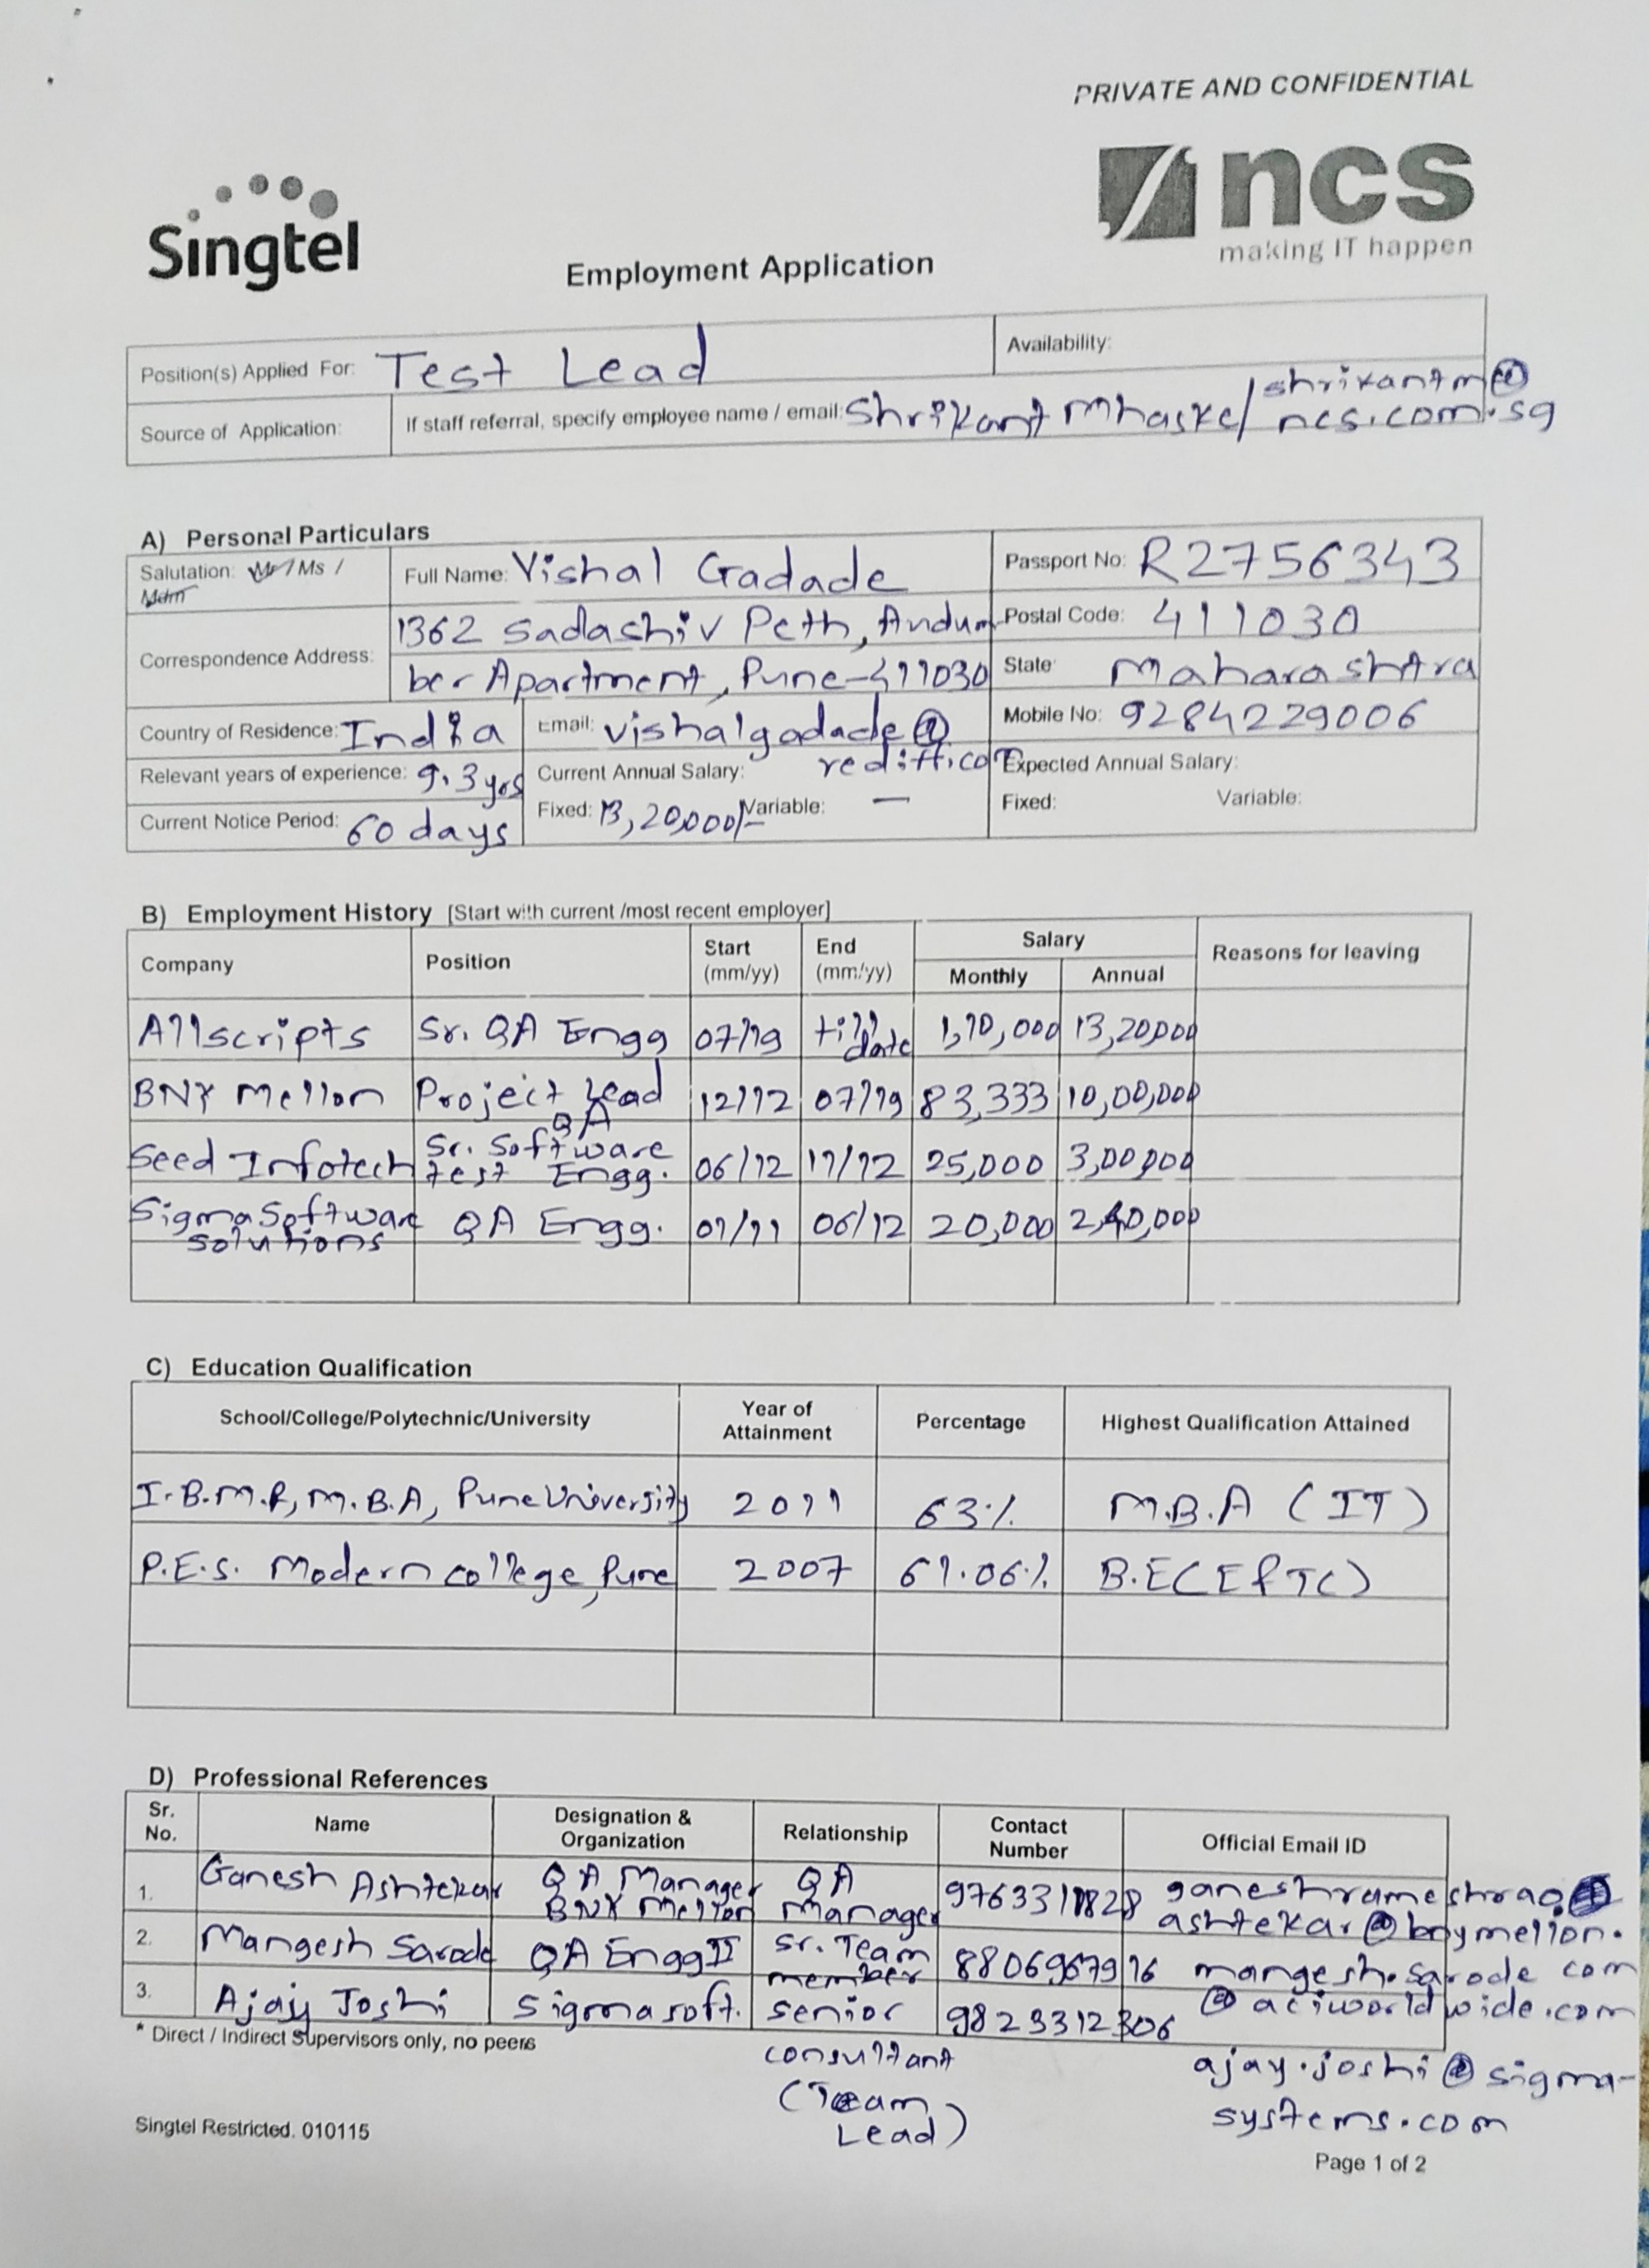 PRIVATE AND CONFIDENTIAL
Singtel
ncs
making IT happen
Employment Application
Position(s) Applied For: Test Lead
Availability:
Source of Application:
If staff referral, specify employee name / email: Shrikant Mhaske/ shrikantm@
ncs.com.sg
A) Personal Particulars
Salutation: Mr / Ms /
Mdm
Full Name: Vishal Gadade
Passport No: R2756343
Correspondence Address:
1362 Sadashiv Peth, Audum
ber Apartment, Pune-411030
Postal Code: 411030
State: Maharashtra
Country of Residence: India
Email: vishalgadade@
rediff.com
Mobile No: 9284229006
Relevant years of experience: 9.3 yrs
Current Annual Salary:
Fixed: 13,20,000/- Variable: —
Expected Annual Salary:
Fixed: Variable:
Current Notice Period: 60 days
B) Employment History [Start with current /most recent employer]
Company Position Start (mm/yy) End (mm/yy) Salary Monthly Annual Reasons for leaving
Allscripts Sr. QA Engg 07/19 till date 1,10,000 13,20,000
BNY Mellon Project Lead QA 12/12 07/19 83,333 10,00,000
Seed Infotech Sr. Software test Engg. 06/12 11/12 25,000 3,00,000
Sigma Software solutions QA Engg. 06/12 20,000 2,40,000
C) Education Qualification
School/College/Polytechnic/University Year of Attainment Percentage Highest Qualification Attained
M.B.A, Pune University 2011 63% M.B.A (IT)
P.E.S. Modern college, Pune 2007 61.06% B.E(E&TC)
D) Professional References
Sr. No. Name Designation & Organization Relationship Contact Number Official Email ID
1. Ganesh Ashtekar QA Manager BNY Mellon QA Manager ganeshrameshrao.
ashtekar@bnymellon.
com
2. Mangesh Sarode QA Engg II Sr. Team member mangesh.sarode
@aciworldwide.com
3. Ajay Joshi Sigmasoft. senior 9823312306
consultant
(Team
Lead)
ajay.joshi@sigma-
systems.com
* Direct / Indirect Supervisors only, no peers
Singtel Restricted. 010115
Page 1 of 2